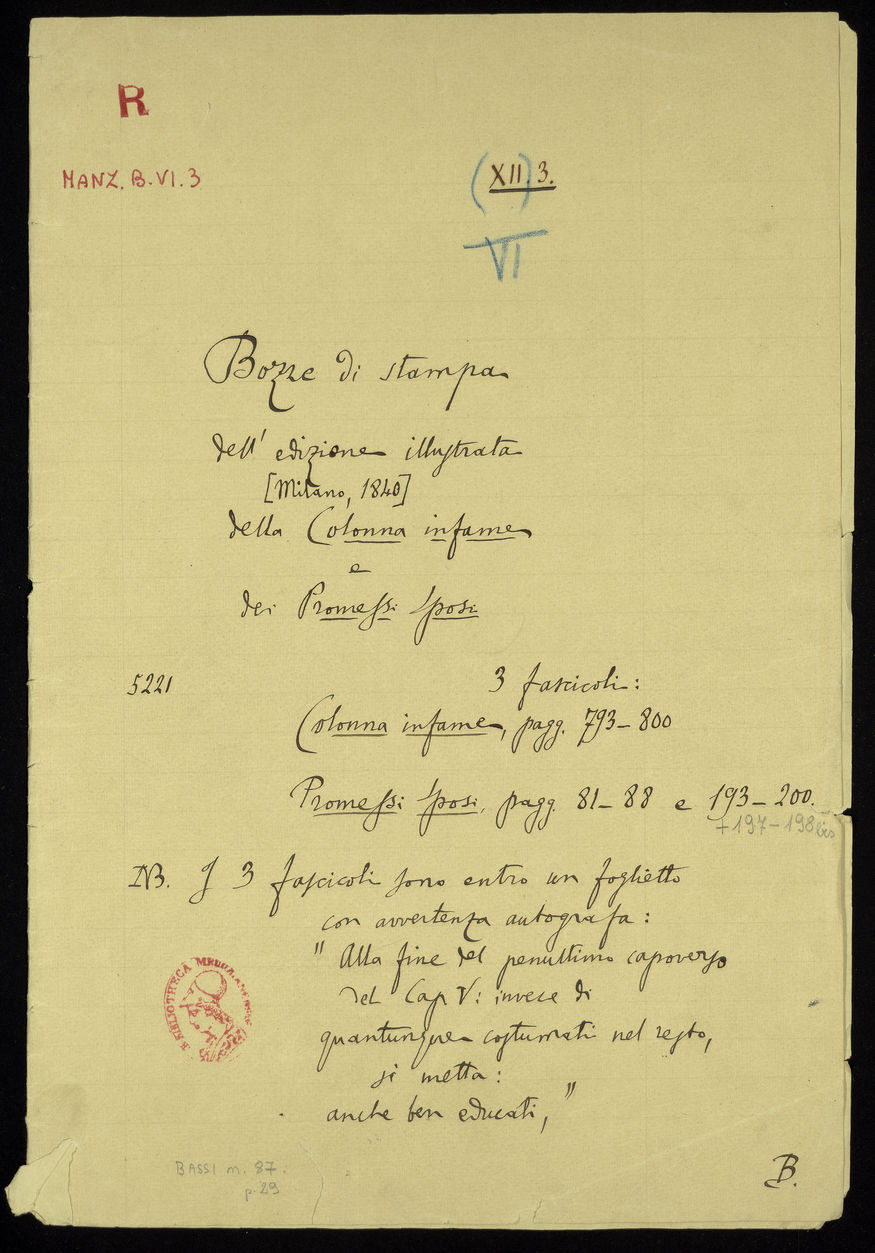 R
MANZ. B. VI. 3
(XII). 3.
VI
Bozze di stampa
dell' edizione illustrata
[Milano, 1840]
della Colonna infame
e
dei Promessi Sposi
5221
3 fascicoli:
Colonna infame, pagg. 793–800
Promessi Sposi, pagg. 81–88 e 193–200.
+ 197–198 bis
NB. I 3 fascicoli sono entro un foglietto
con avvertenza autografa:
"Alla fine del penultimo capoverso
del Cap V: invece di
quantunque costumati nel resto,
si metta:
anche ben educati,"
BIBLIOTHECA
B.
BASSI n. 87.
p. 29